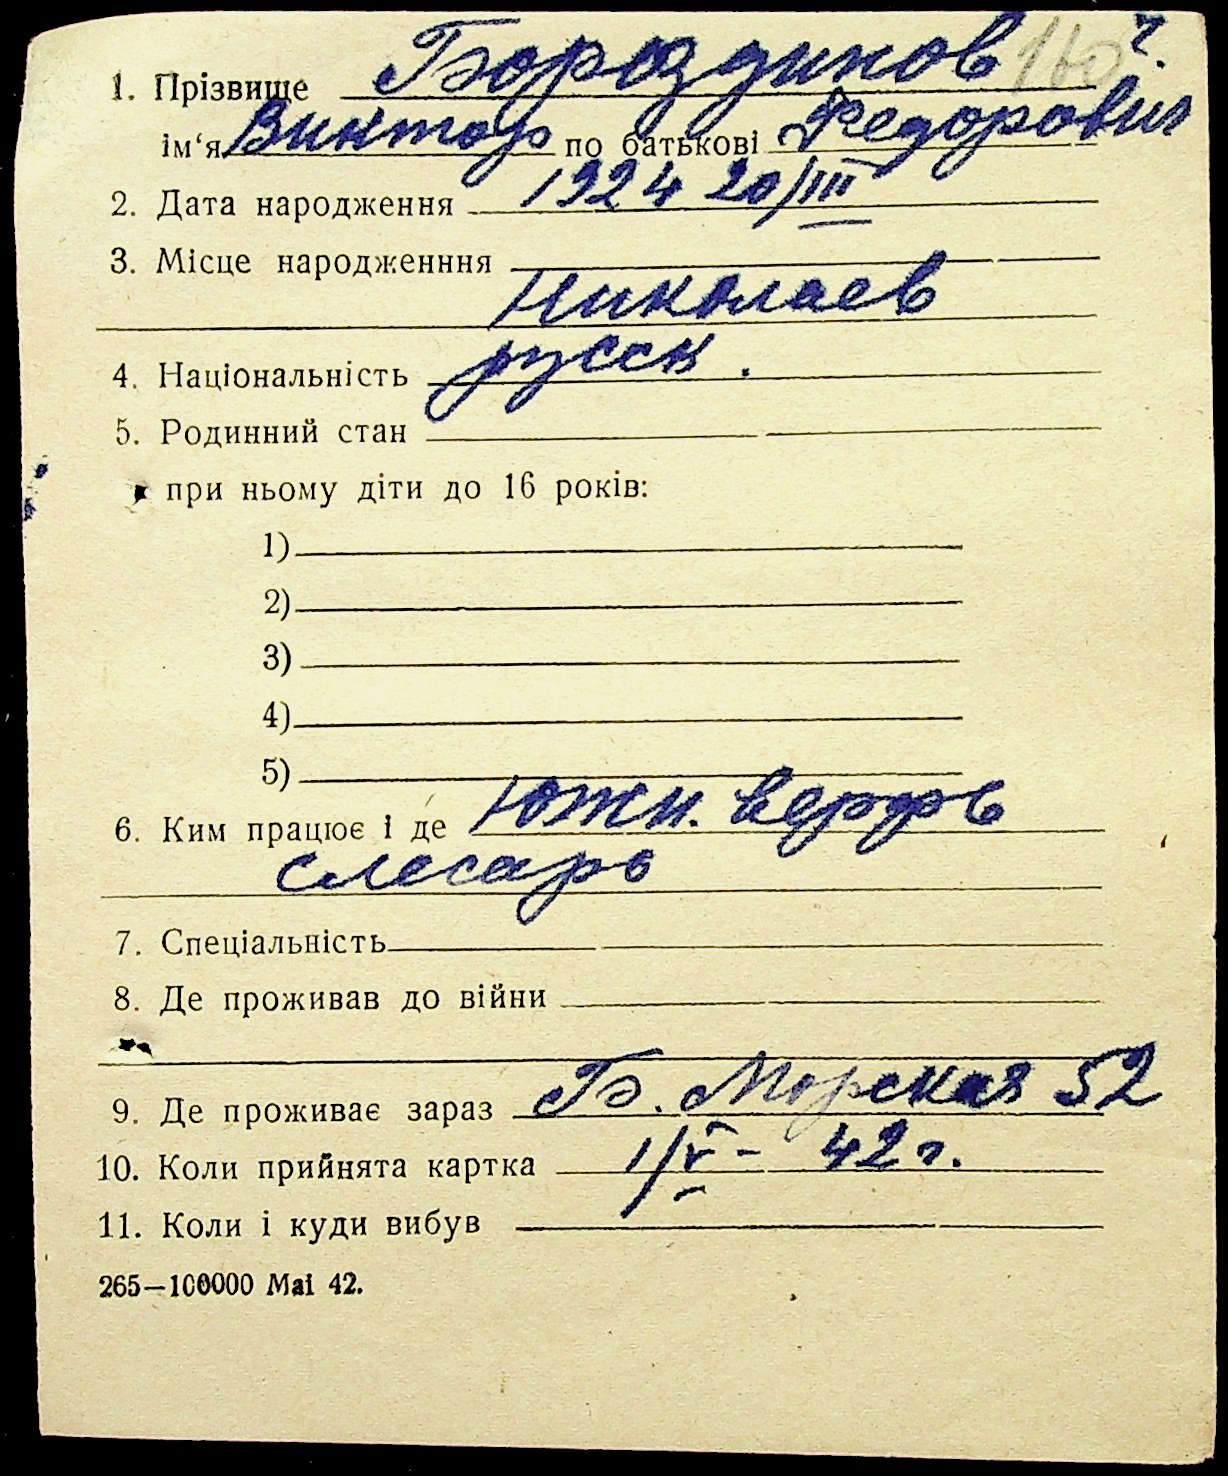 1. Прізвище Бороздинов 160 ч.
ім‘я Виктор по батькові Федорович
2. Дата народження 1924 20/III
3. Місце народженння
Николаев
4. Національність русск.
5. Родинний стан
при ньому діти до 16 років:
1)
2)
3)
4)
5)
6. Ким працює і де Южн. верфь
слесарь
7. Спеціальність
8. Де проживав до війни
9. Де проживає зараз Б. Морская 52
10. Коли прийнята картка 1/V - 42 г.
11. Коли і куди вибув
265—100000 Mai 42.